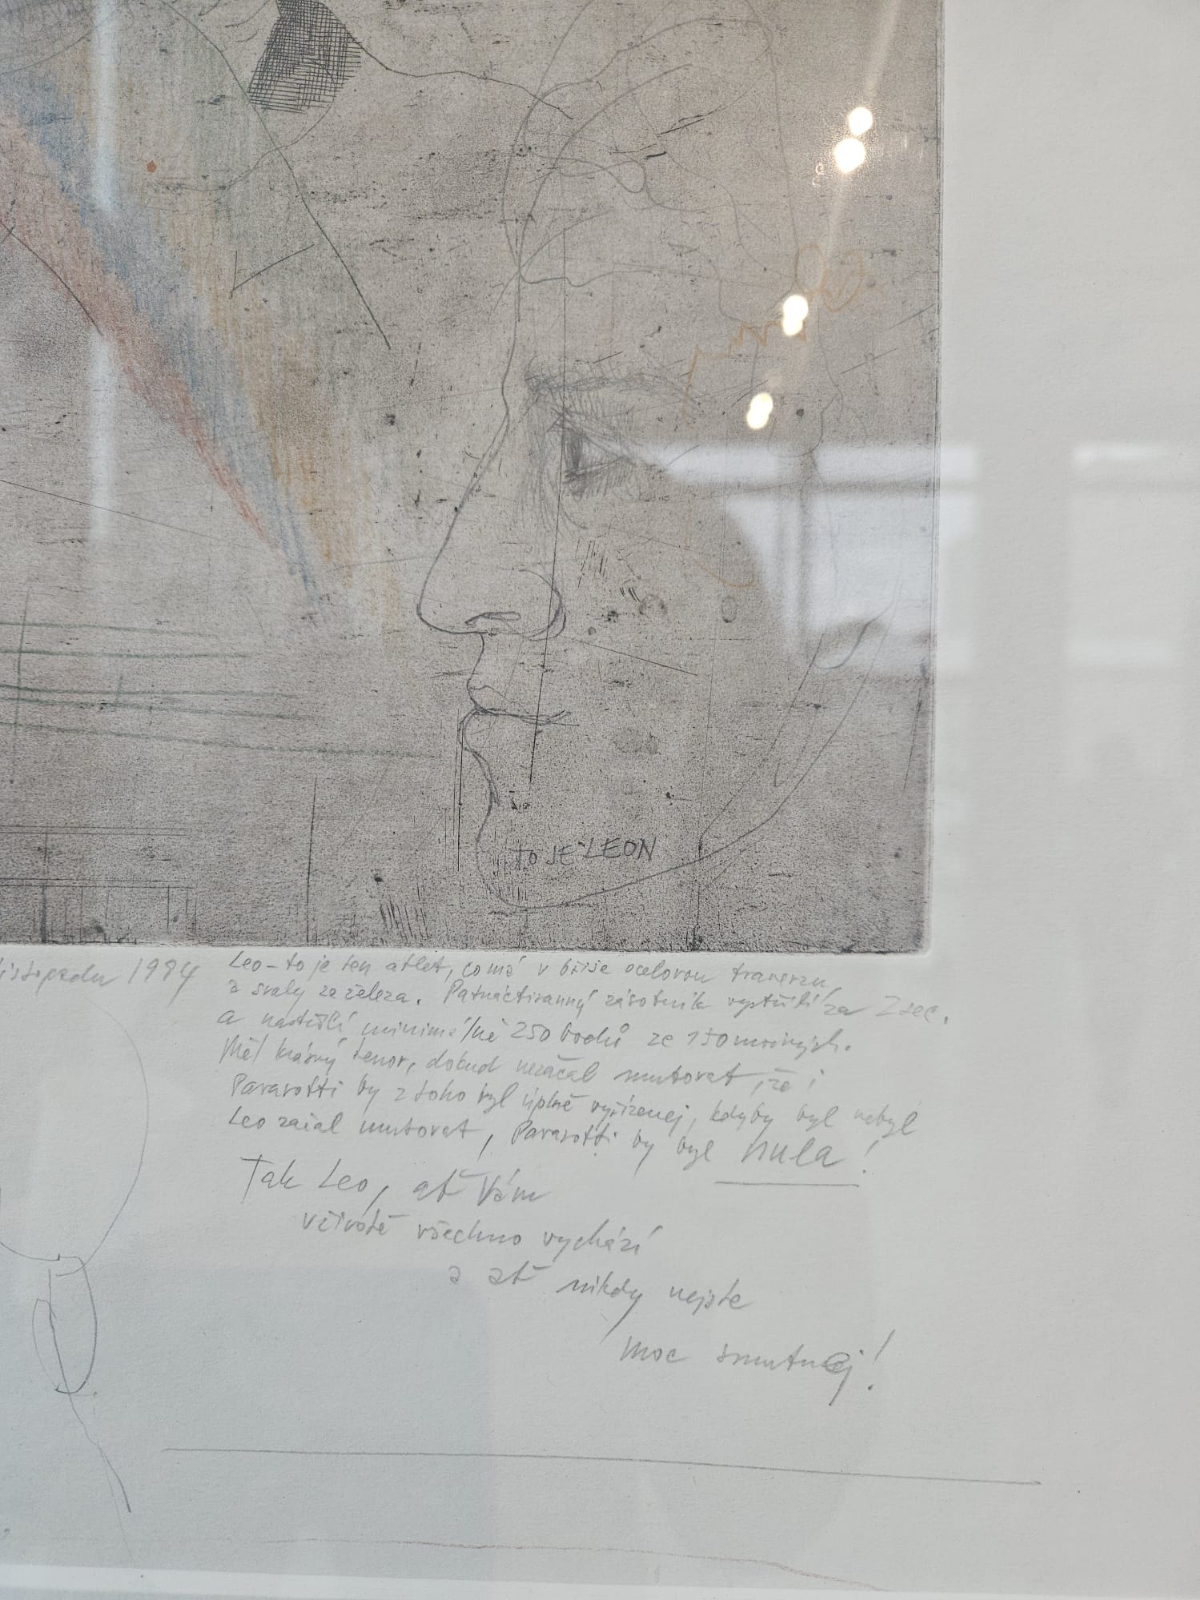 TO JE LEON
listopadu 1994
Leo – to je ten atlet, co má v břiše ocelovou traverzu
a svaly ze železa. Patnáctiranný zásobník vystřílí za 7 sec.
a nastřílí minimálně 250 bodů ze 150 možných.
Měl krásný tenor, dokud nezačal mutovat, že i
Pavarotti by z toho byl úplně vyřízenej, kdyby byl nebyl
Leo začal mutovat, Pavarotti by byl nula!
Tak Leo, ať Vám
v životě všechno vychází
a ať nikdy nejste
moc smutnej!